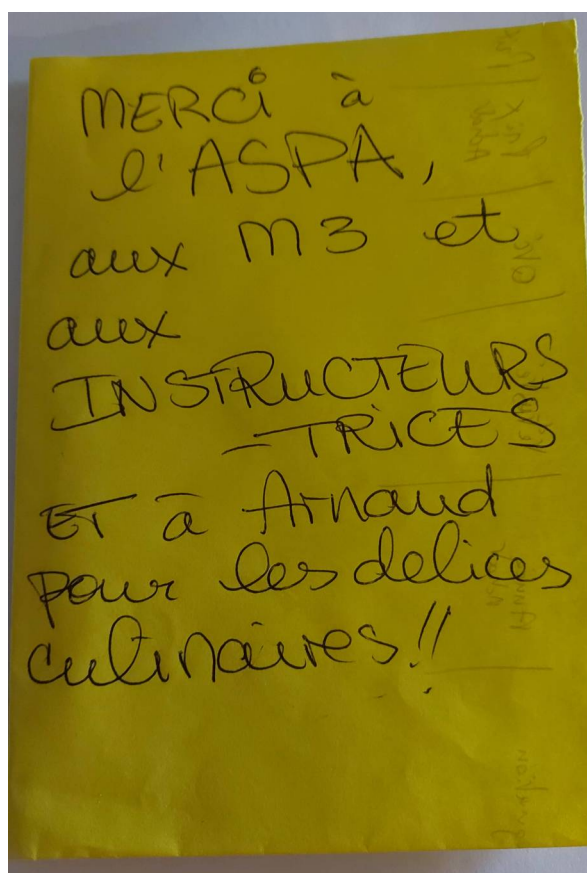 MERCi à
l'ASPA,
aux M3 et
aux
INSTRUCTEURS
-TRiCES
ET à Arnaud
pour les delices
culinaires!!